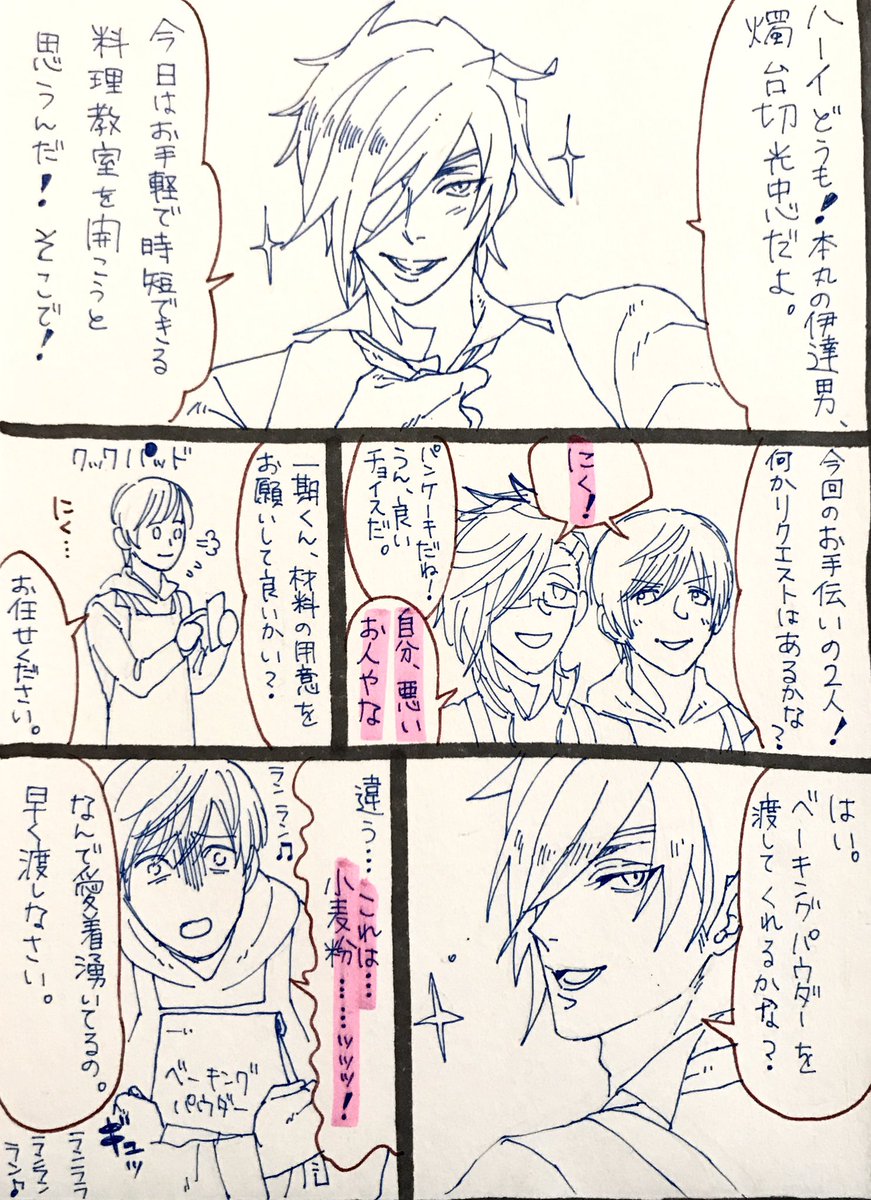 ハーイどうも!本丸の伊達男、
燭台切光忠だよ。
今日はお手軽で時短できる
料理教室を開こうと
思うんだ!そこで!
今回のお手伝いの2人!
何かリクエストはあるかな?
にく!
パンケーキだね!
うん、良い
チョイスだ。
自分、悪い
お人やな
一期くん、材料の用意を
お願いして良いかい?
クックパッド
にく…
お任せください。
はい。
ベーキングパウダーを
渡してくれるかな?
違う…これは…
小麦粉……ッッッ!
ラン ラン♫
なんで愛着湧いてるの。
早く渡しなさい。
ベーキング
パウダー
ギュッ
ランララ
ランラン
ラン♪